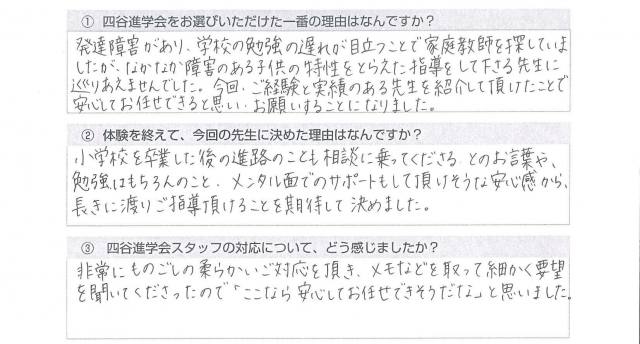 ① 四谷進学会をお選びいただけた一番の理由はなんですか？
発達障害があり、学校の勉強の遅れが目立つことで家庭教師を探していま
したが、なかなか障害のある子供の特性をとらえた指導をして下さる先生に
巡りあえませんでした。今回、ご経験と実績のある先生を紹介して頂けたことで
安心してお任せできると思い、お願いすることになりました。
② 体験を終えて、今回の先生に決めた理由はなんですか？
小学校を卒業した後の進路のことも相談に乗ってくださる とのお言葉や、
勉強はもちろんのこと、メンタル面でのサポートもして頂けそうな安心感から、
長きに渡りご指導頂けることを期待して決めました。
③ 四谷進学会スタッフの対応について、どう感じましたか？
非常にものごしの柔らかいご対応を頂き、メモなどを取って細かく要望
を聞いてくださったので「ここなら安心してお任せできそうだな」と思いました。